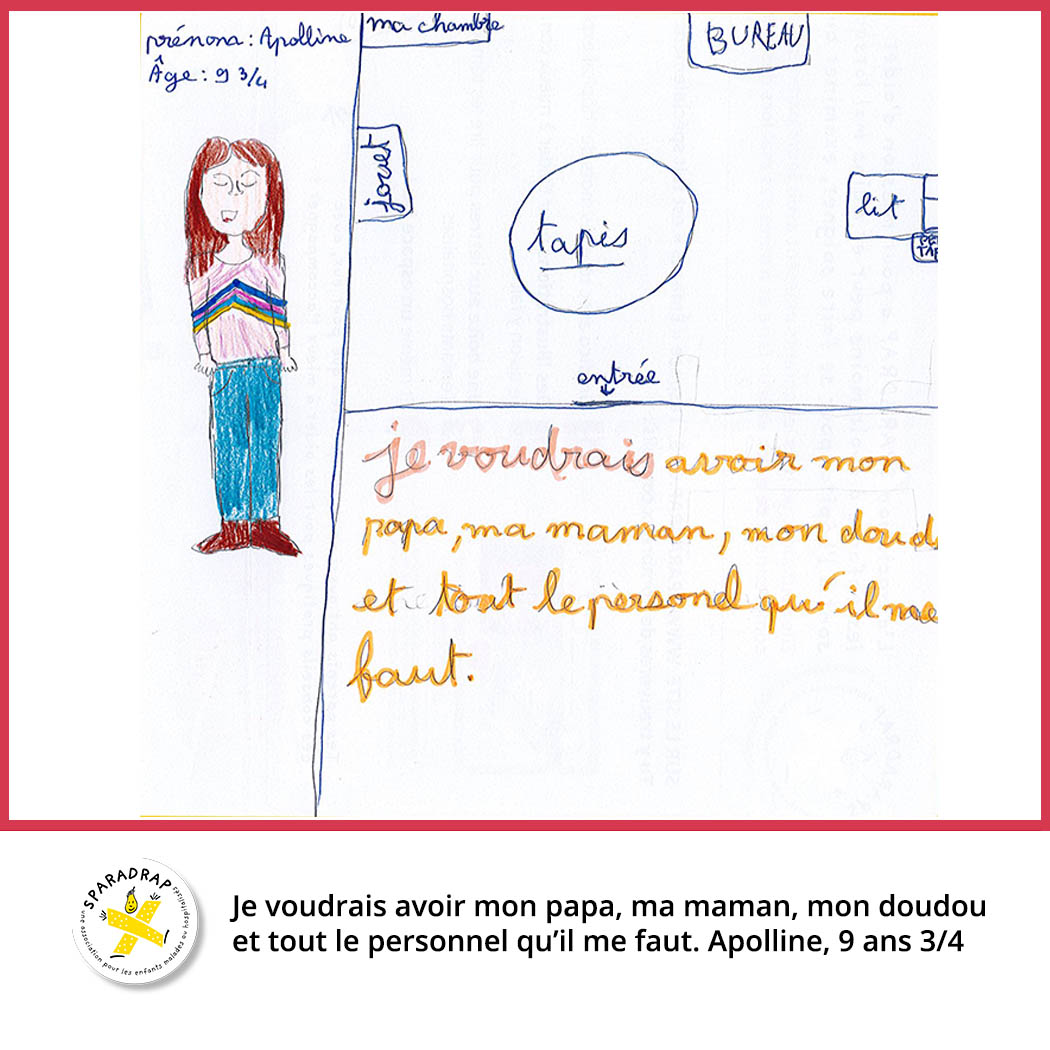 prénom : Apolline
Âge : 9 3/4
ma chambre
BUREAU
jouet
lit
tapis
entrée
je voudrais avoir mon
papa, ma maman, mon doud
et tout le personel qu'il me
faut.
SPARADRAP
une association pour les enfants malades ou hospitalisés
Je voudrais avoir mon papa, ma maman, mon doudou
et tout le personnel qu'il me faut. Apolline, 9 ans 3/4